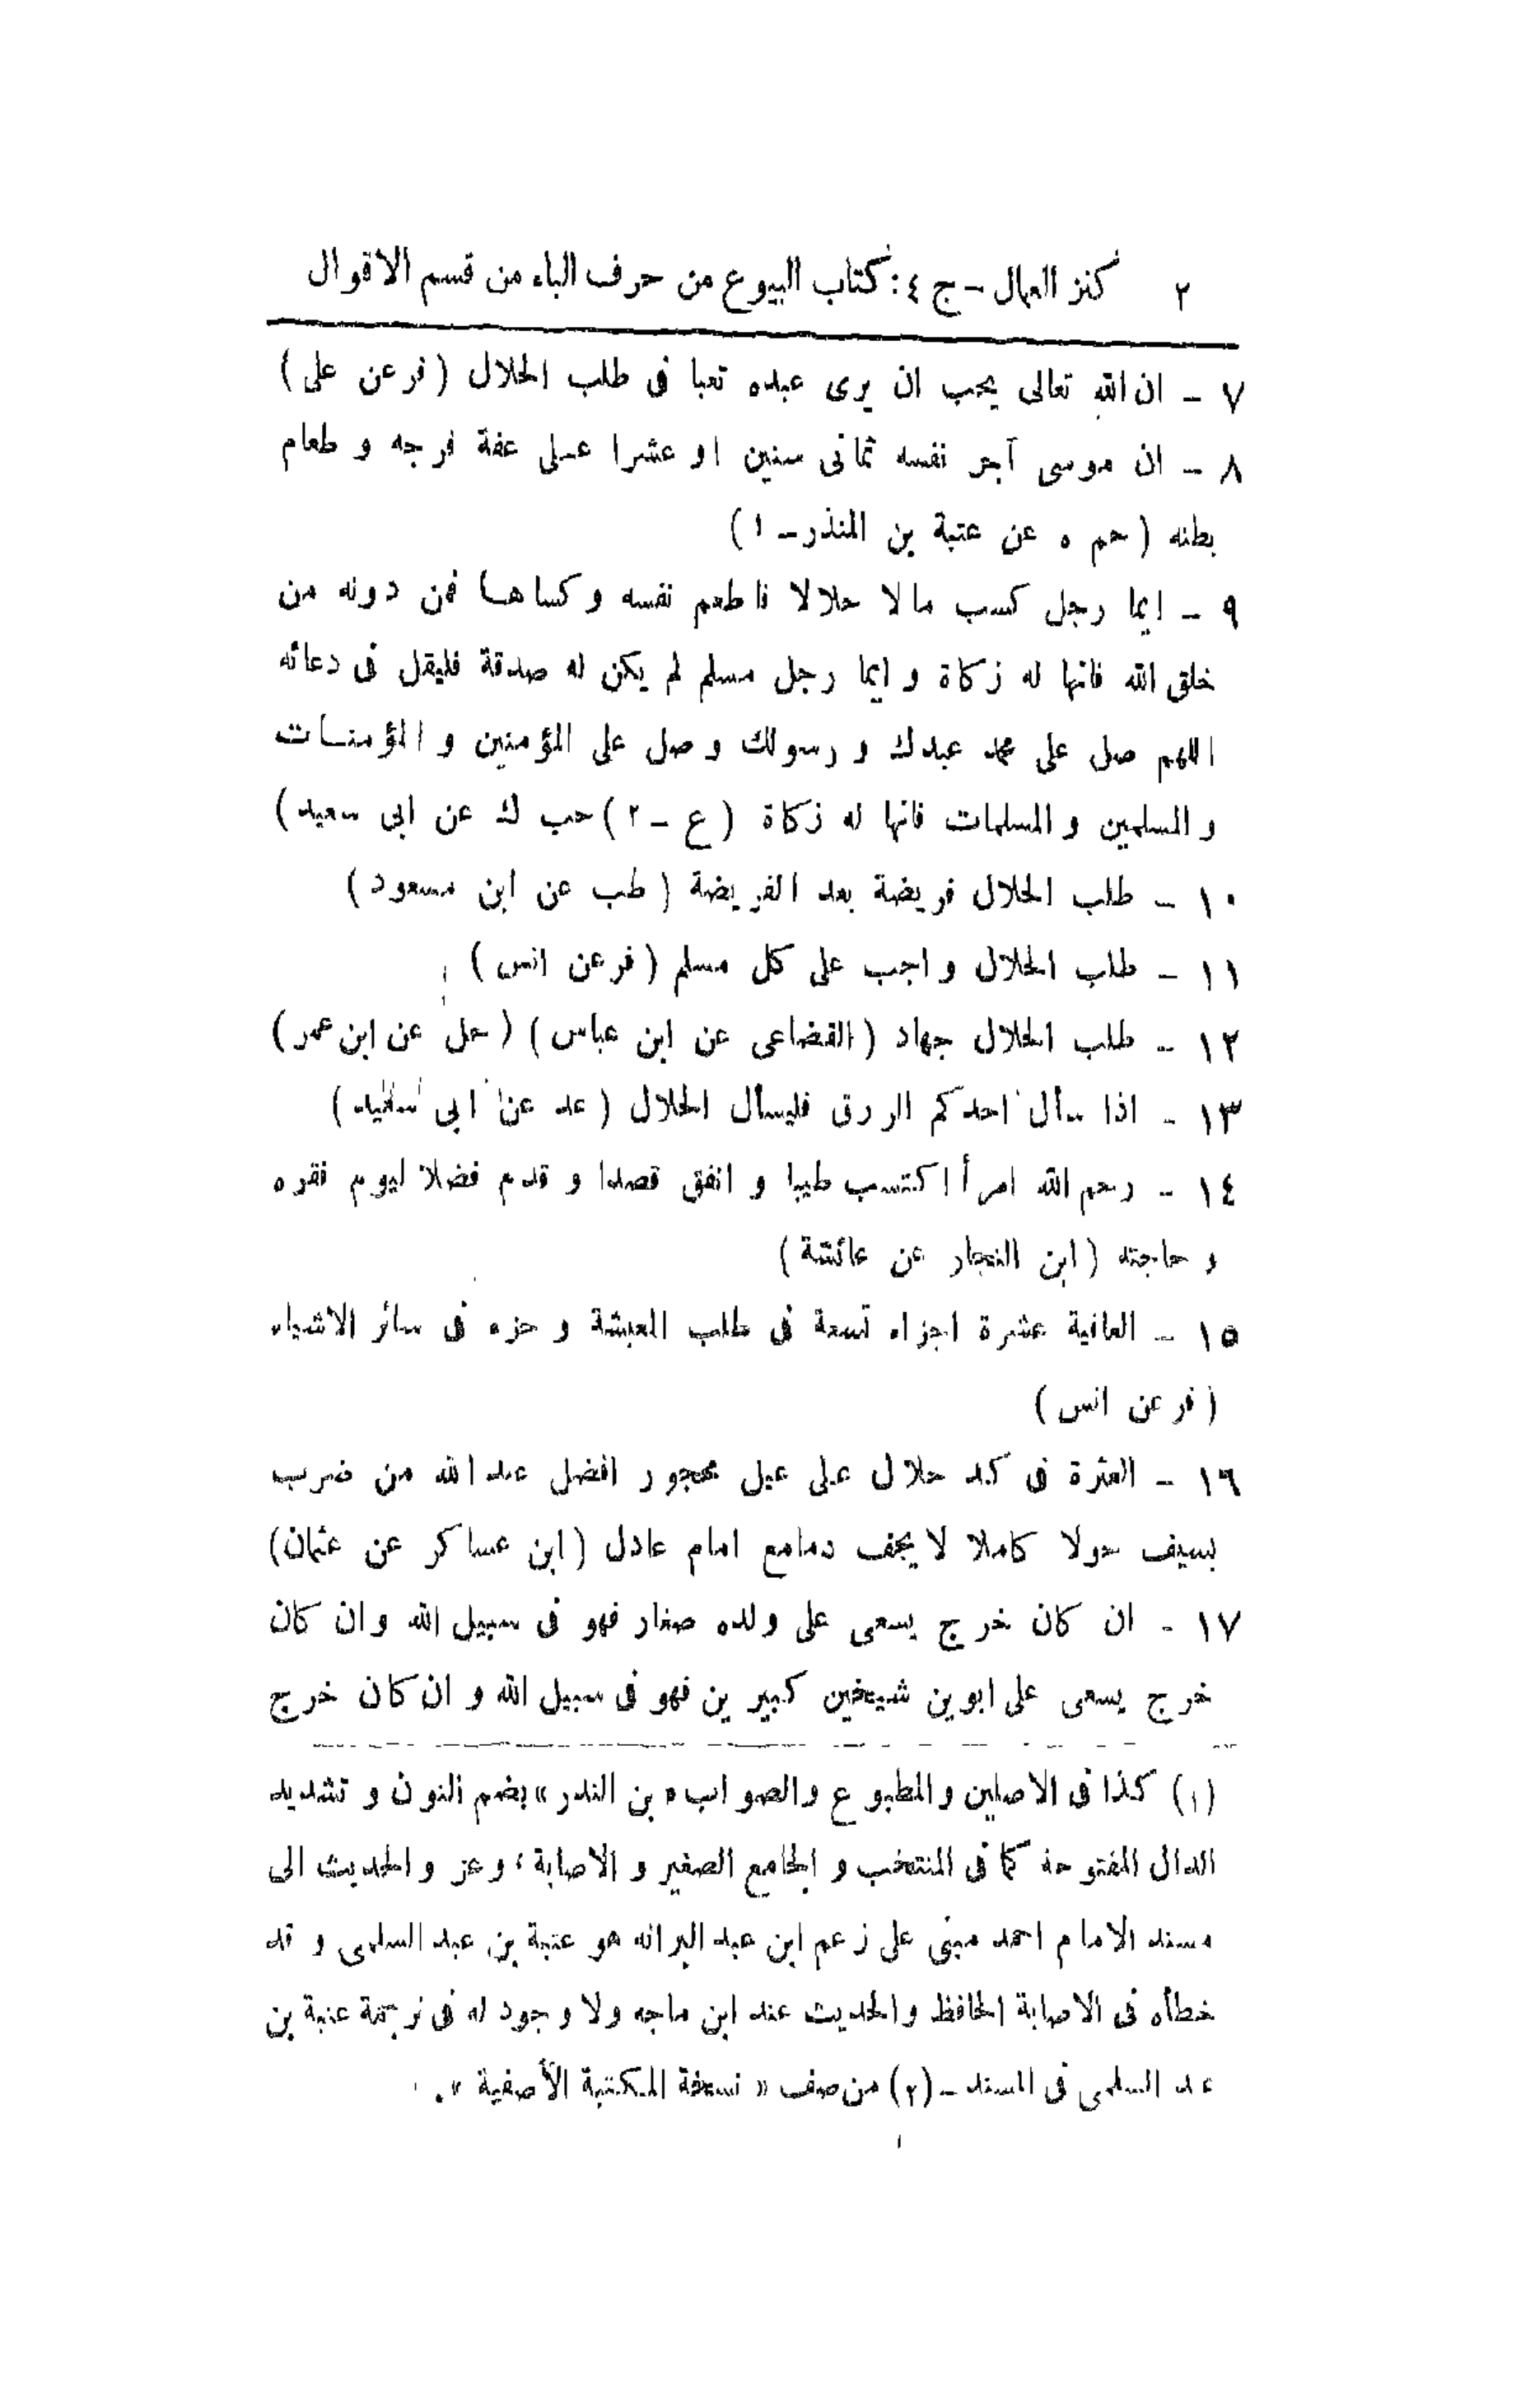 ٢ كنز العمال - ج ٤ : كتاب البيوع من حرف الباء من قسم الاقوال
٧ - ان الله تعالى يحب ان يرى عبده تعبا فى طلب الحلال ( فر عن على )
٨ - ان موسى آجر نفسه ثمانى سنين او عشرا على عفة فرجه و طعام
بطنه ( حم ه عن عتبة بن المنذر - ١ )
٩ - ايما رجل كسب مالا حلالا فاطعم نفسه و كساها فمن دونه من
خلق الله فانها له زكاة و ايما رجل مسلم لم يكن له صدقة فليقل فى دعائه
اللهم صل على محمد عبدك و رسولك و صل على المؤمنين و المؤمنات
و المسلمين و المسلمات فانها له زكاة ( ع - ٢ ) حب ك عن ابى سعيد )
١٠ - طلب الحلال فريضة بعد الفريضة ( طب عن ابن مسعود )
١١ - طلب الحلال واجب على كل مسلم ( فر عن انس )
١٢ - طلب الحلال جهاد ( القضاعى عن ابن عباس ) ( حل عن ابن عمر )
١٣ - اذا سأل احدكم الرزق فليسأل الحلال ( عد عن ابى سعيد )
١٤ - رحم الله امرأ اكتسب طيبا و انفق قصدا و قدم فضلا ليوم فقره
و حاجته ( ابن النجار عن عائشة )
١٥ - العافية عشرة اجزاء تسعة فى طلب المعيشة و جزء فى سائر الاشياء
( فر عن انس )
١٦ - العثرة فى كد حلال على عيل محجور افضل عند الله من ضرب
بسيف حولا كاملا لا يجف دمامع امام عادل ( ابن عساكر عن عثمان )
١٧ - ان كان خرج يسعى على ولده صغار فهو فى سبيل الله وان كان
خرج يسعى على ابوين شيخين كبيرين فهو فى سبيل الله و ان كان خرج
(١) كذا فى الاصلين والمطبوع والصواب « بن الندر » بضم النون و تشديد
الدال المفتوحة كما فى المنتخب و الجامع الصغير و الاصابة ، وعزو الحديث الى
مسند الامام احمد مبنى على زعم ابن عبد البر انه هو عتبة بن عبد السلمى و قد
خطأه فى الاصابة الحافظ والحديث عند ابن ماجه ولا وجود له فى ترجمة عتبة بن
عبد السلمى فى المسند - (٢) من صف « نسخة المكتبة الآصفية » .